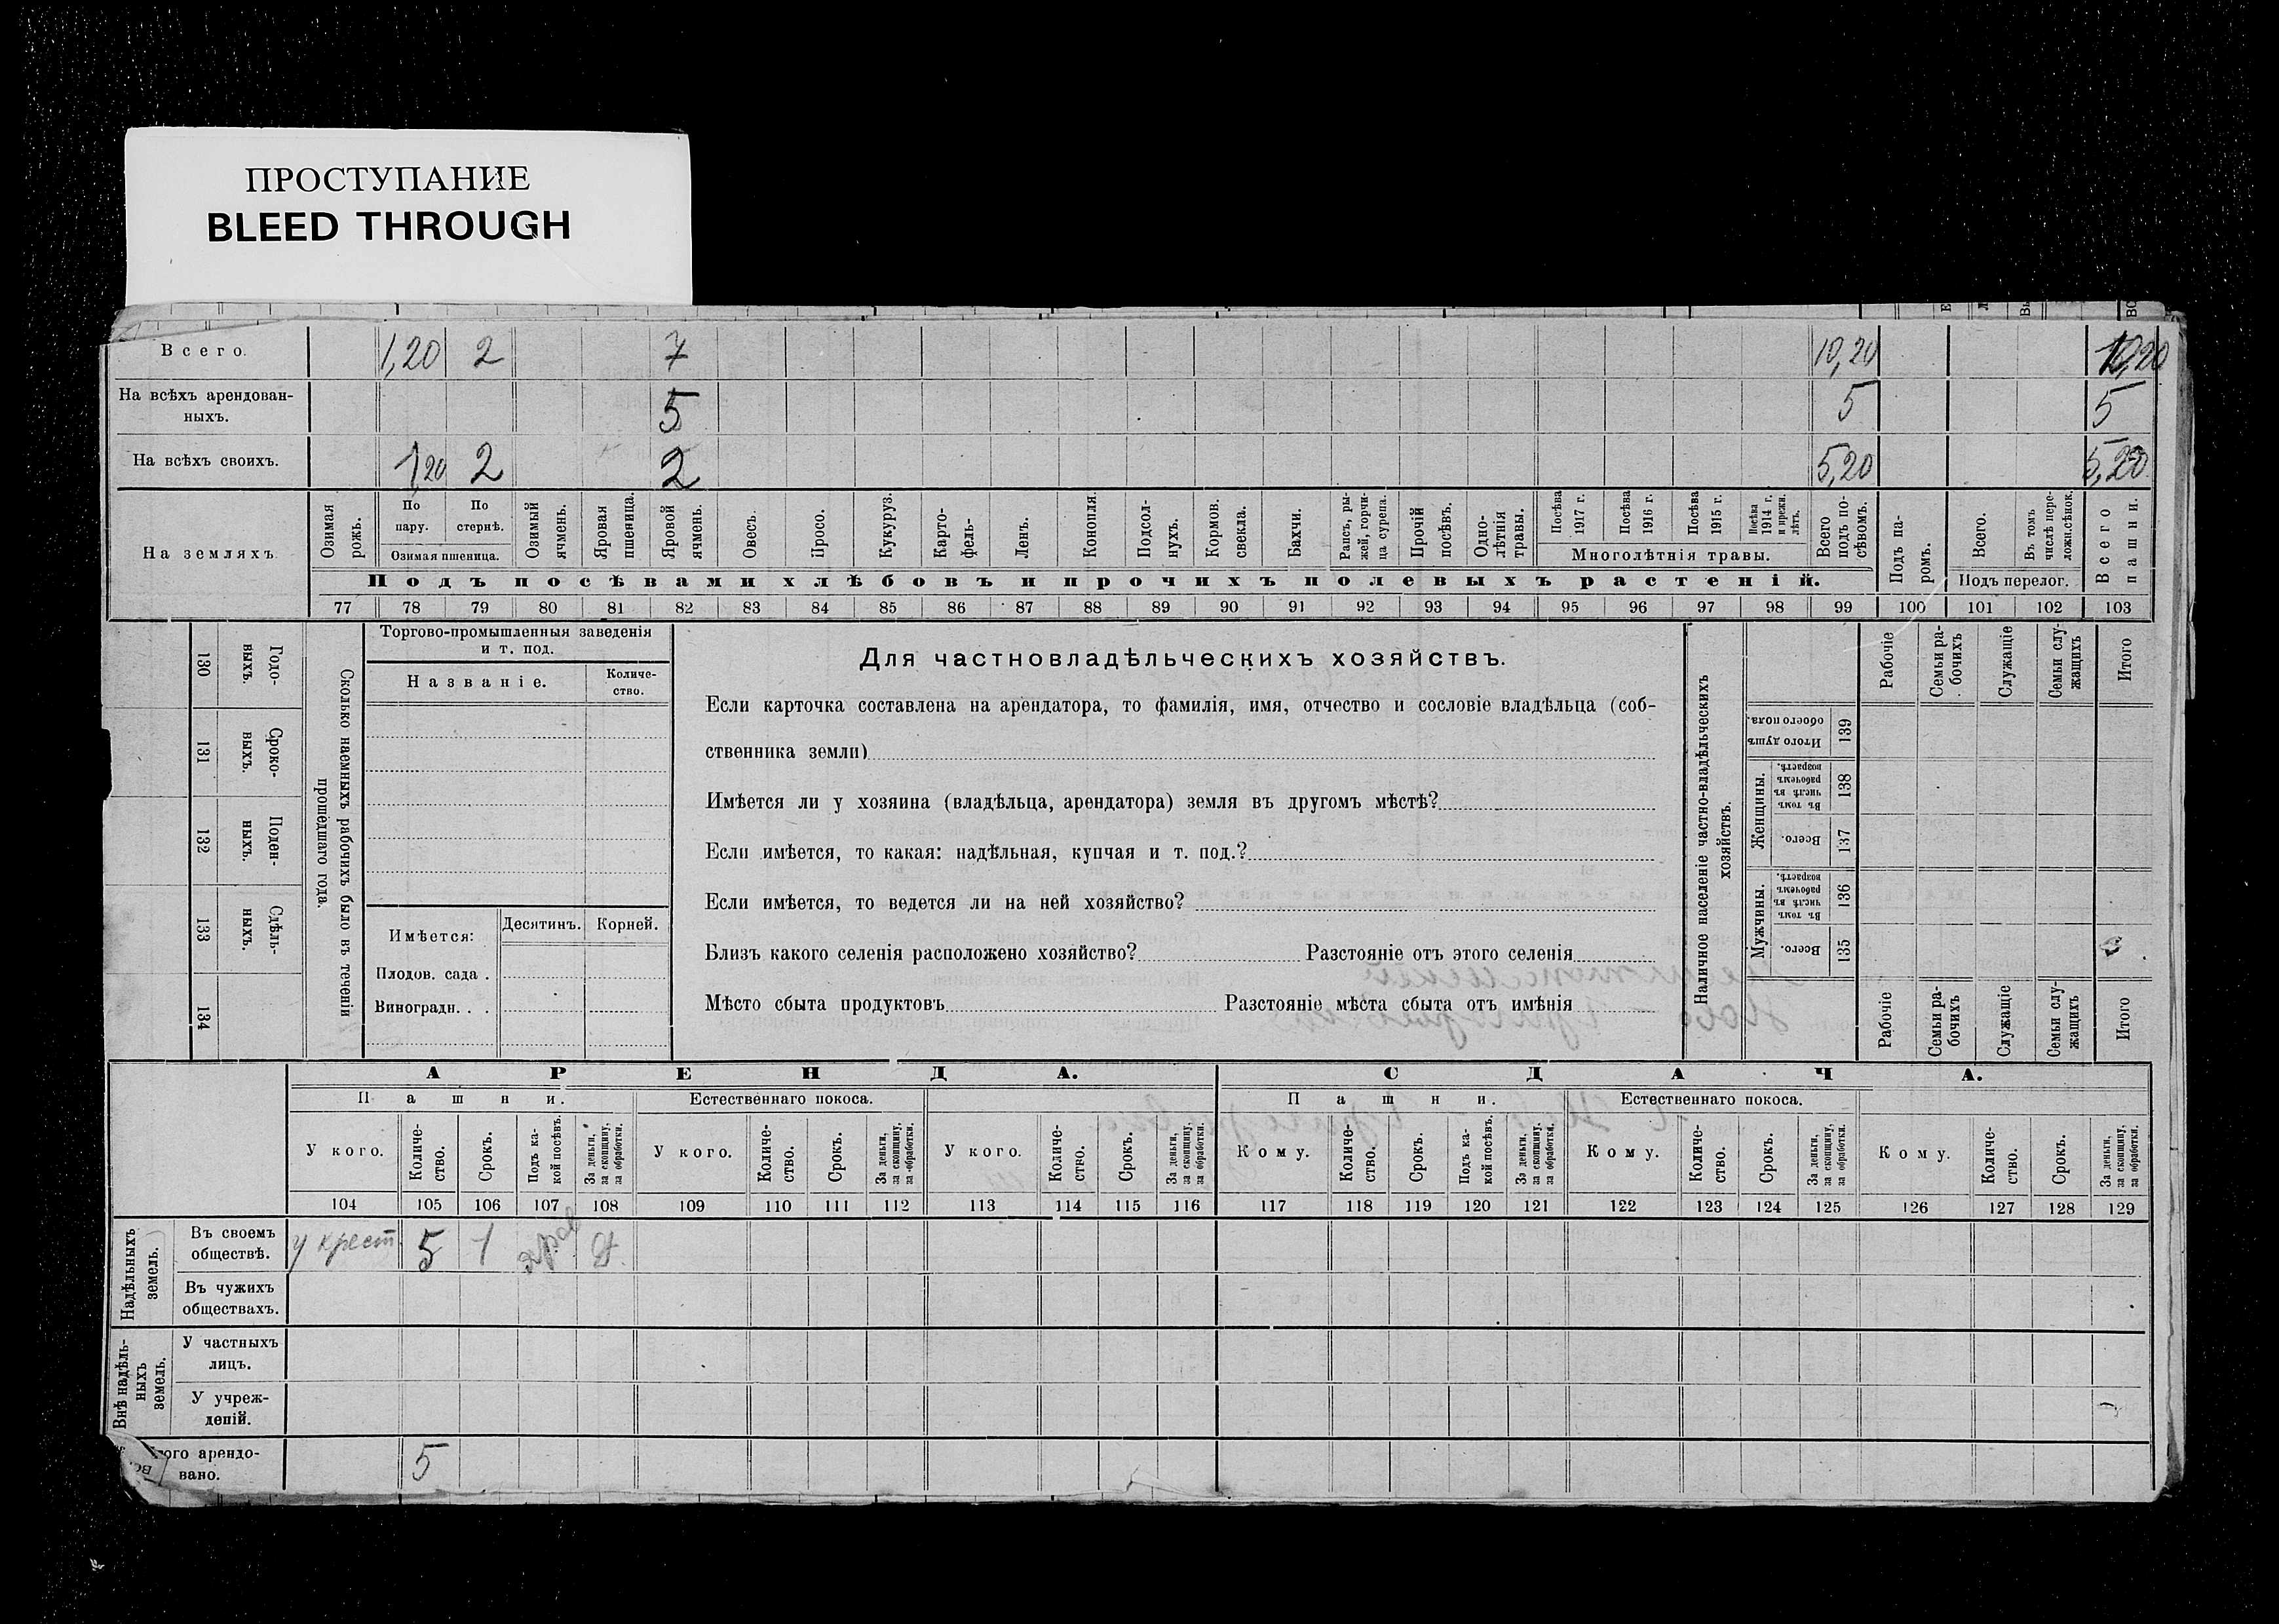 ПРОСТУПАНИЕ
BLEED THROUGH
Всего. 1,20 2 7 10,20 10,20
На всѣхъ арендован-
ныхъ. 5 5 5
На всѣхъ своихъ. 1,20 2 2 5,20 5,20
На земляхъ
Озимая рожь.
По пару.
По стернѣ.
Озимая пшеница.
Озимый ячмень.
Яровая пшеница.
Яровой ячмень.
Овесъ.
Просо.
Кукуруз.
Карто-
фель-
Ленъ.
Конопля.
Подсол-
нухъ.
Кормов.
свекла.
Бахчи.
Рапсъ, ры-
жей, горчи-
ца сурепа.
Прочій
посѣвъ.
Одно-
лѣтнія
травы.
Посѣва
1917 г.
Посѣва
1916 г.
Посѣва
1915 г.
Посѣва
1914 г.
и прежн.
лѣтъ.
Многолѣтнія травы.
Всего
подъ по-
сѣвомъ.
Подъ па-
ромъ.
Всего.
Въ томъ
числѣ пере-
ложн.сѣнок.
Подъ перелог.
Всего
пашни.
Подъ посѣвами хлѣбовъ и прочихъ полевыхъ растеній.
77 78 79 80 81 82 83 84 85 86 87 88 89 90 91 92 93 94 95 96 97 98 99 100 101 102 103
130 Годо-
выхъ.
131 Сроко-
выхъ.
132 Поден-
ныхъ.
133 Сдѣль-
ныхъ.
134
Сколько наемныхъ рабочихъ было въ теченіи
прошедшаго года.
Торгово-промышленныя заведенія
и т. под.
Названіе.
Количе-
ство.
Имѣется:
Десятинъ. Корней.
Плодов. сада .
Виноградн. . .
Для частновладѣльческихъ хозяйствъ.
Если карточка составлена на арендатора, то фамилія, имя, отчество и сословіе владѣльца (соб-
ственника земли)
Имѣется ли у хозяина (владѣльца, арендатора) земля въ другомъ мѣстѣ?
Если имѣется, то какая: надѣльная, купчая и т. под.?
Если имѣется, то ведется ли на ней хозяйство?
Близъ какого селенія расположено хозяйство? Разстояніе отъ этого селенія
Мѣсто сбыта продуктовъ Разстояніе мѣста сбыта отъ имѣнія
Наличное населеніе частно-владѣльческихъ
хозяйствъ.
Рабочіе
Семьи ра-
бочихъ
Служащіе
Семьи слу-
жащихъ
Итого
Итого душъ
обоего пола.
139
Женщины.
Въ томъ
числѣ въ
рабочемъ
возрастѣ.
138
Всего.
137
Мужчины.
Въ томъ
числѣ въ
рабочемъ
возрастѣ.
136
Всего.
135
Рабочіе
Семьи ра-
бочихъ
Служащіе
Семьи слу-
жащихъ
Итого
АРЕНДА. СДАЧА.
Пашни. Естественнаго покоса. Пашни. Естественнаго покоса.
У кого.
Количе-
ство.
Срокъ.
Подъ ка-
кой посѣвъ.
За деньги,
за скопщину,
за обработки.
У кого.
Количе-
ство.
Срокъ.
За деньги,
за скопщину,
за обработки.
У кого.
Количе-
ство.
Срокъ.
За деньги,
за скопщину,
за обработки.
Кому.
Количе-
ство.
Срокъ.
Подъ ка-
кой посѣвъ.
За деньги,
за скопщину,
за обработки.
Кому.
Количе-
ство.
Срокъ.
За деньги,
за скопщину,
за обработки.
Кому.
Количе-
ство.
Срокъ.
За деньги,
за скопщину,
за обработки.
104 105 106 107 108 109 110 111 112 113 114 115 116 117 118 119 120 121 122 123 124 125 126 127 128 129
Надѣльныхъ
земель.
Въ своемъ
обществѣ. у крест. 5 1 яров Д.
Въ чужихъ
обществахъ.
Внѣ надѣль-
ныхъ
земель.
У частныхъ
лицъ.
У учреж-
деній.
того арендо-
вано. 5